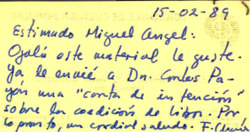 15-02-89
Estimado Miguel Angel:
Ojalá este material le guste.
Ya le envié a Dn. Carlos Pa-
yán una "carta de intención"
sobre la coedición de libro. Por
lo pronto, un cordial saludo.